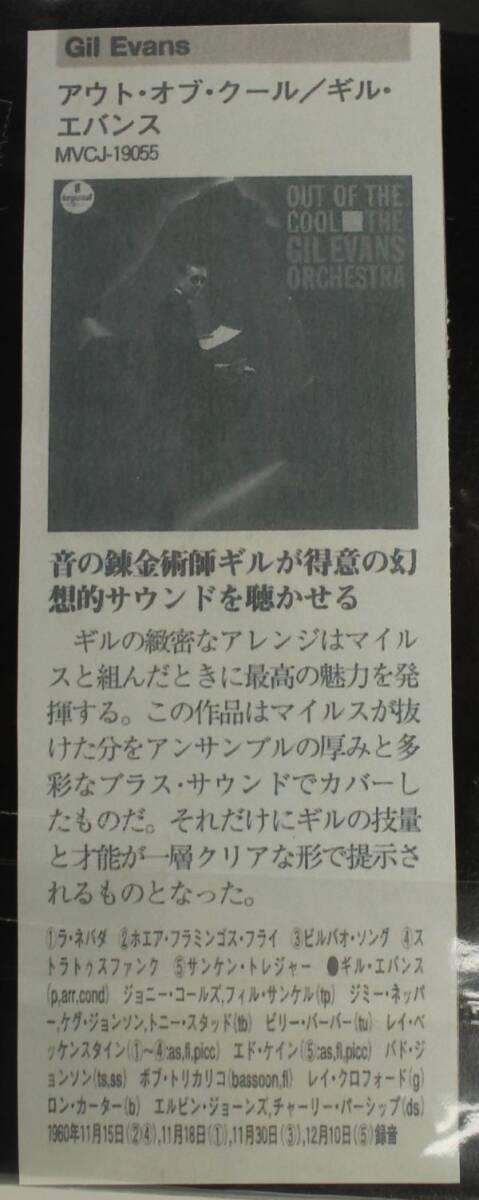 Gil Evans
アウト・オブ・クール／ギル・
エバンス
MVCJ-19055
OUT OF THE
COOL THE
GIL EVANS
ORCHESTRA
音の錬金術師ギルが得意の幻
想的サウンドを聴かせる
ギルの緻密なアレンジはマイル
スと組んだときに最高の魅力を発
揮する。この作品はマイルスが抜
けた分をアンサンブルの厚みと多
彩なブラス・サウンドでカバーし
たものだ。それだけにギルの技量
と才能が一層クリアな形で提示さ
れるものとなった。
①ラ・ネバダ ②ホエア・フラミンゴス・フライ ③ビルバオ・ソング ④ス
トラトゥスファンク ⑤サンケン・トレジャー ●ギル・エバンス
(p,arr,cond) ジョニー・コールズ,フィル・サンケル(tp) ジミー・ネッパ
ー,ケグ・ジョンソン,トニー・スタッド(tb) ビリー・バーバー(tu) レイ・ベ
ッケンスタイン(①〜④:as,fl,picc) エド・ケイン(⑤:as,fl,picc) バド・ジ
ョンソン(ts,ss) ボブ・トリカリコ(bassoon,fl) レイ・クロフォード(g)
ロン・カーター(b) エルビン・ジョーンズ,チャーリー・パーシップ(ds)
1960年11月15日(②④),11月18日(①),11月30日(③),12月10日(⑤)録音